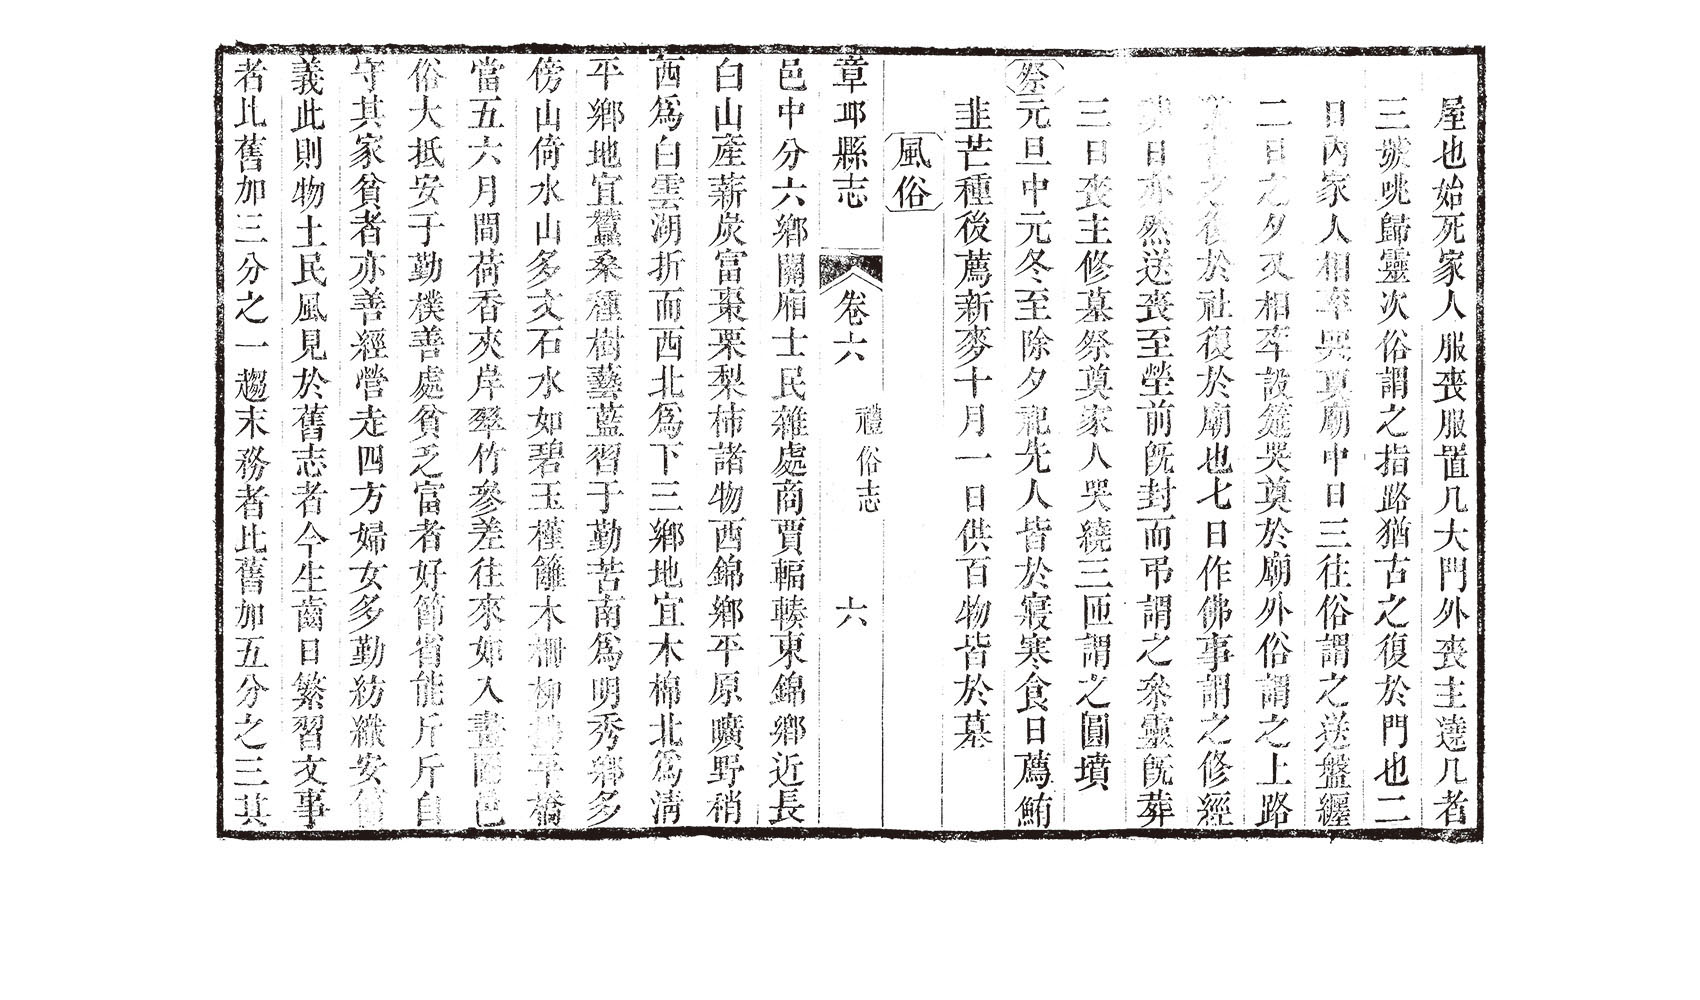 屋也始死家人服喪服置几大門外喪主遶几者
三號咷歸靈次俗謂之指路猶古之復於門也二
日內家人相率哭奠廟中日三往俗謂之送盤纏
二日之夕又相率設筵哭奠於廟外俗謂之上路
之後於社復於廟也七日作佛事謂之修經
日亦然送喪至塋前旣封而弔謂之叅靈旣葬
三日喪主修墓祭奠家人哭繞三匝謂之圓墳
祭元旦中元冬至除夕祀先人皆於寢寒食日薦鮪
韭芒種後薦新麥十月一日供百物皆於墓
風俗
章邱縣志 卷六 禮俗志 六
邑中分六鄉關廂士民雜處商賈輻輳東錦鄉近長
白山產薪炭富棗栗梨柿諸物西錦鄉平原曠野稍
西爲白雲湖折而西北爲下三鄉地宜木棉北爲淸
平鄉地宜蠶桑種樹藝藍習于勤苦南爲明秀鄉多
傍山倚水山多文石水如碧玉槿籬木柵柳平橋
當五六月間荷香夾岸翠竹參差往來如入畫圖邑
俗大抵安于勤樸善處貧乏富者好節省能斤斤自
守其家貧者亦善經營走四方婦女多勤紡織安節
義此則物土民風見於舊志者今生齒日繁習文事
者比舊加三分之一趨末務者比舊加五分之三其